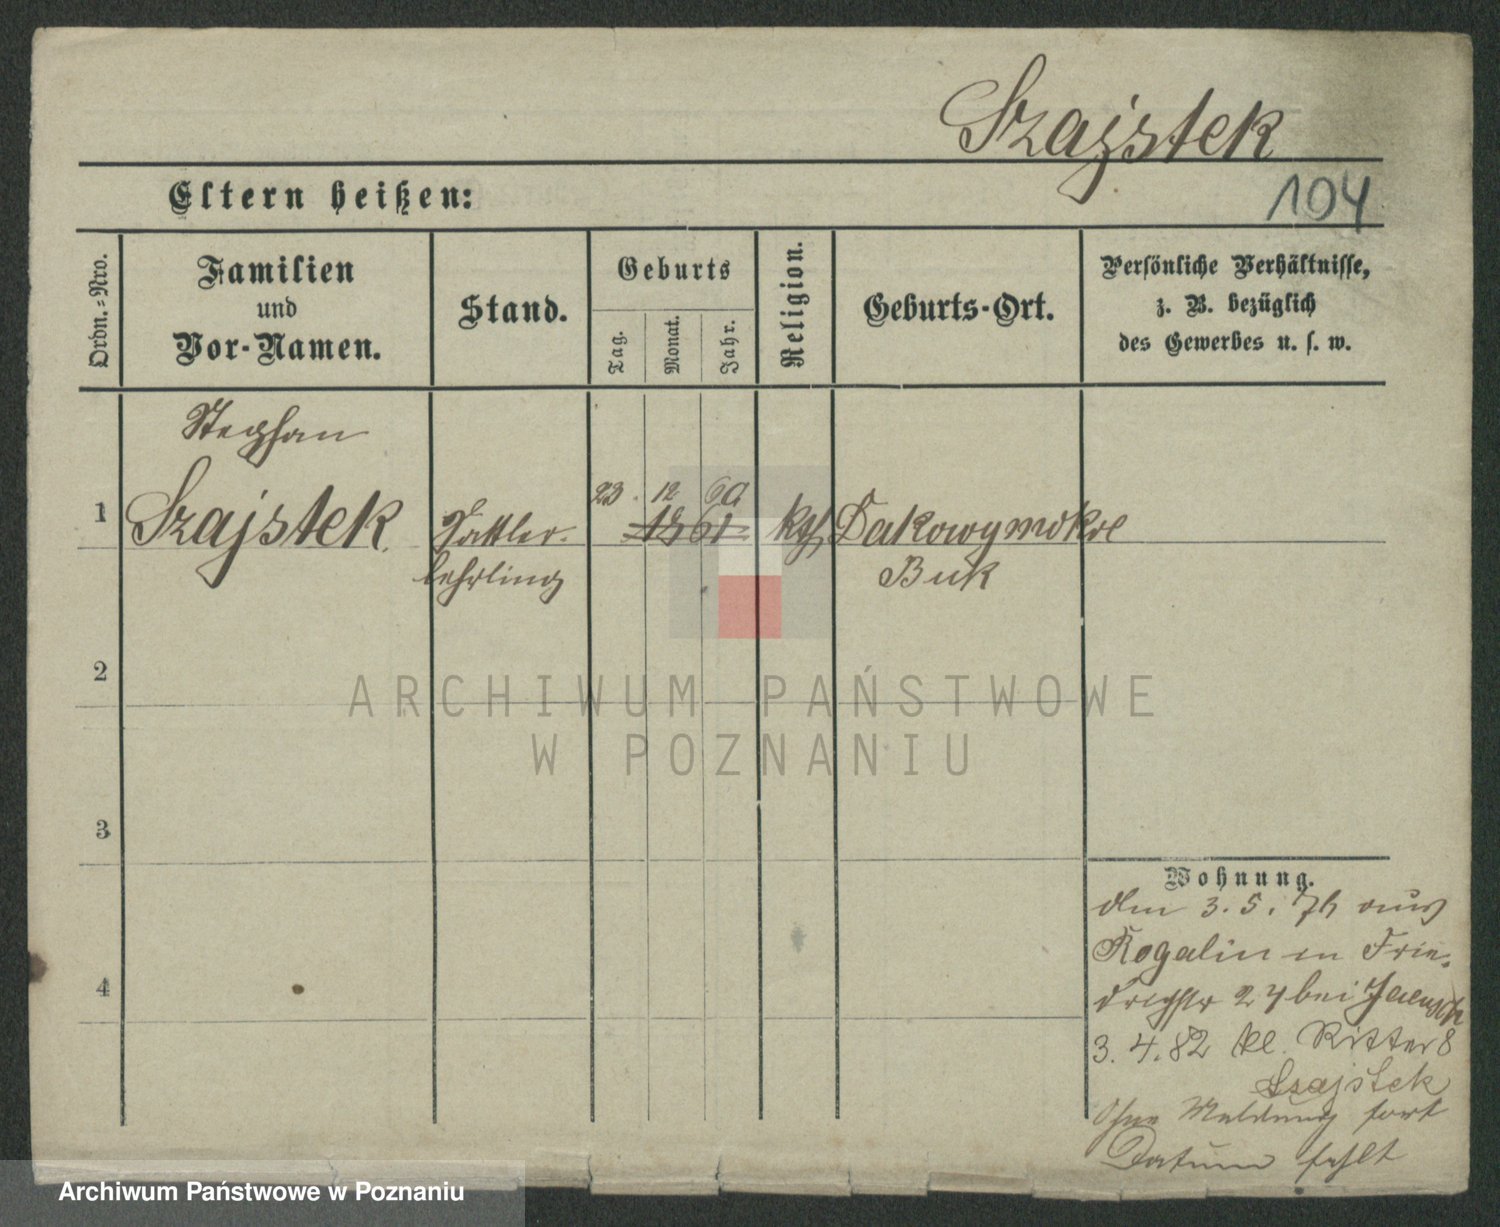 Szajstek
Eltern heißen:
104
Ordn.=Nro.
Familien
und
Vor-Namen.
Stand.
Geburts
Tag.
Monat.
Jahr.
Religion.
Geburts-Ort.
Persönliche Verhältnisse,
z. B. bezüglich
des Gewerbes u. s. w.
Stephan
1
Szajstek
Sattler-
lehrling
23. 12 60
1861
kth
Dakowymokre
Buk
2
ARCHIWUM PAŃSTWOWE
W POZNANIU
3
Wohnung.
den 3. 5. 76 aus
Rogalin in Frie-
drichstr 24 bei
4
3. 4. 82 kl. Ritter 8
Szajstek
Ohne Meldung fort
Datum fehlt
Archiwum Państwowe w Poznaniu